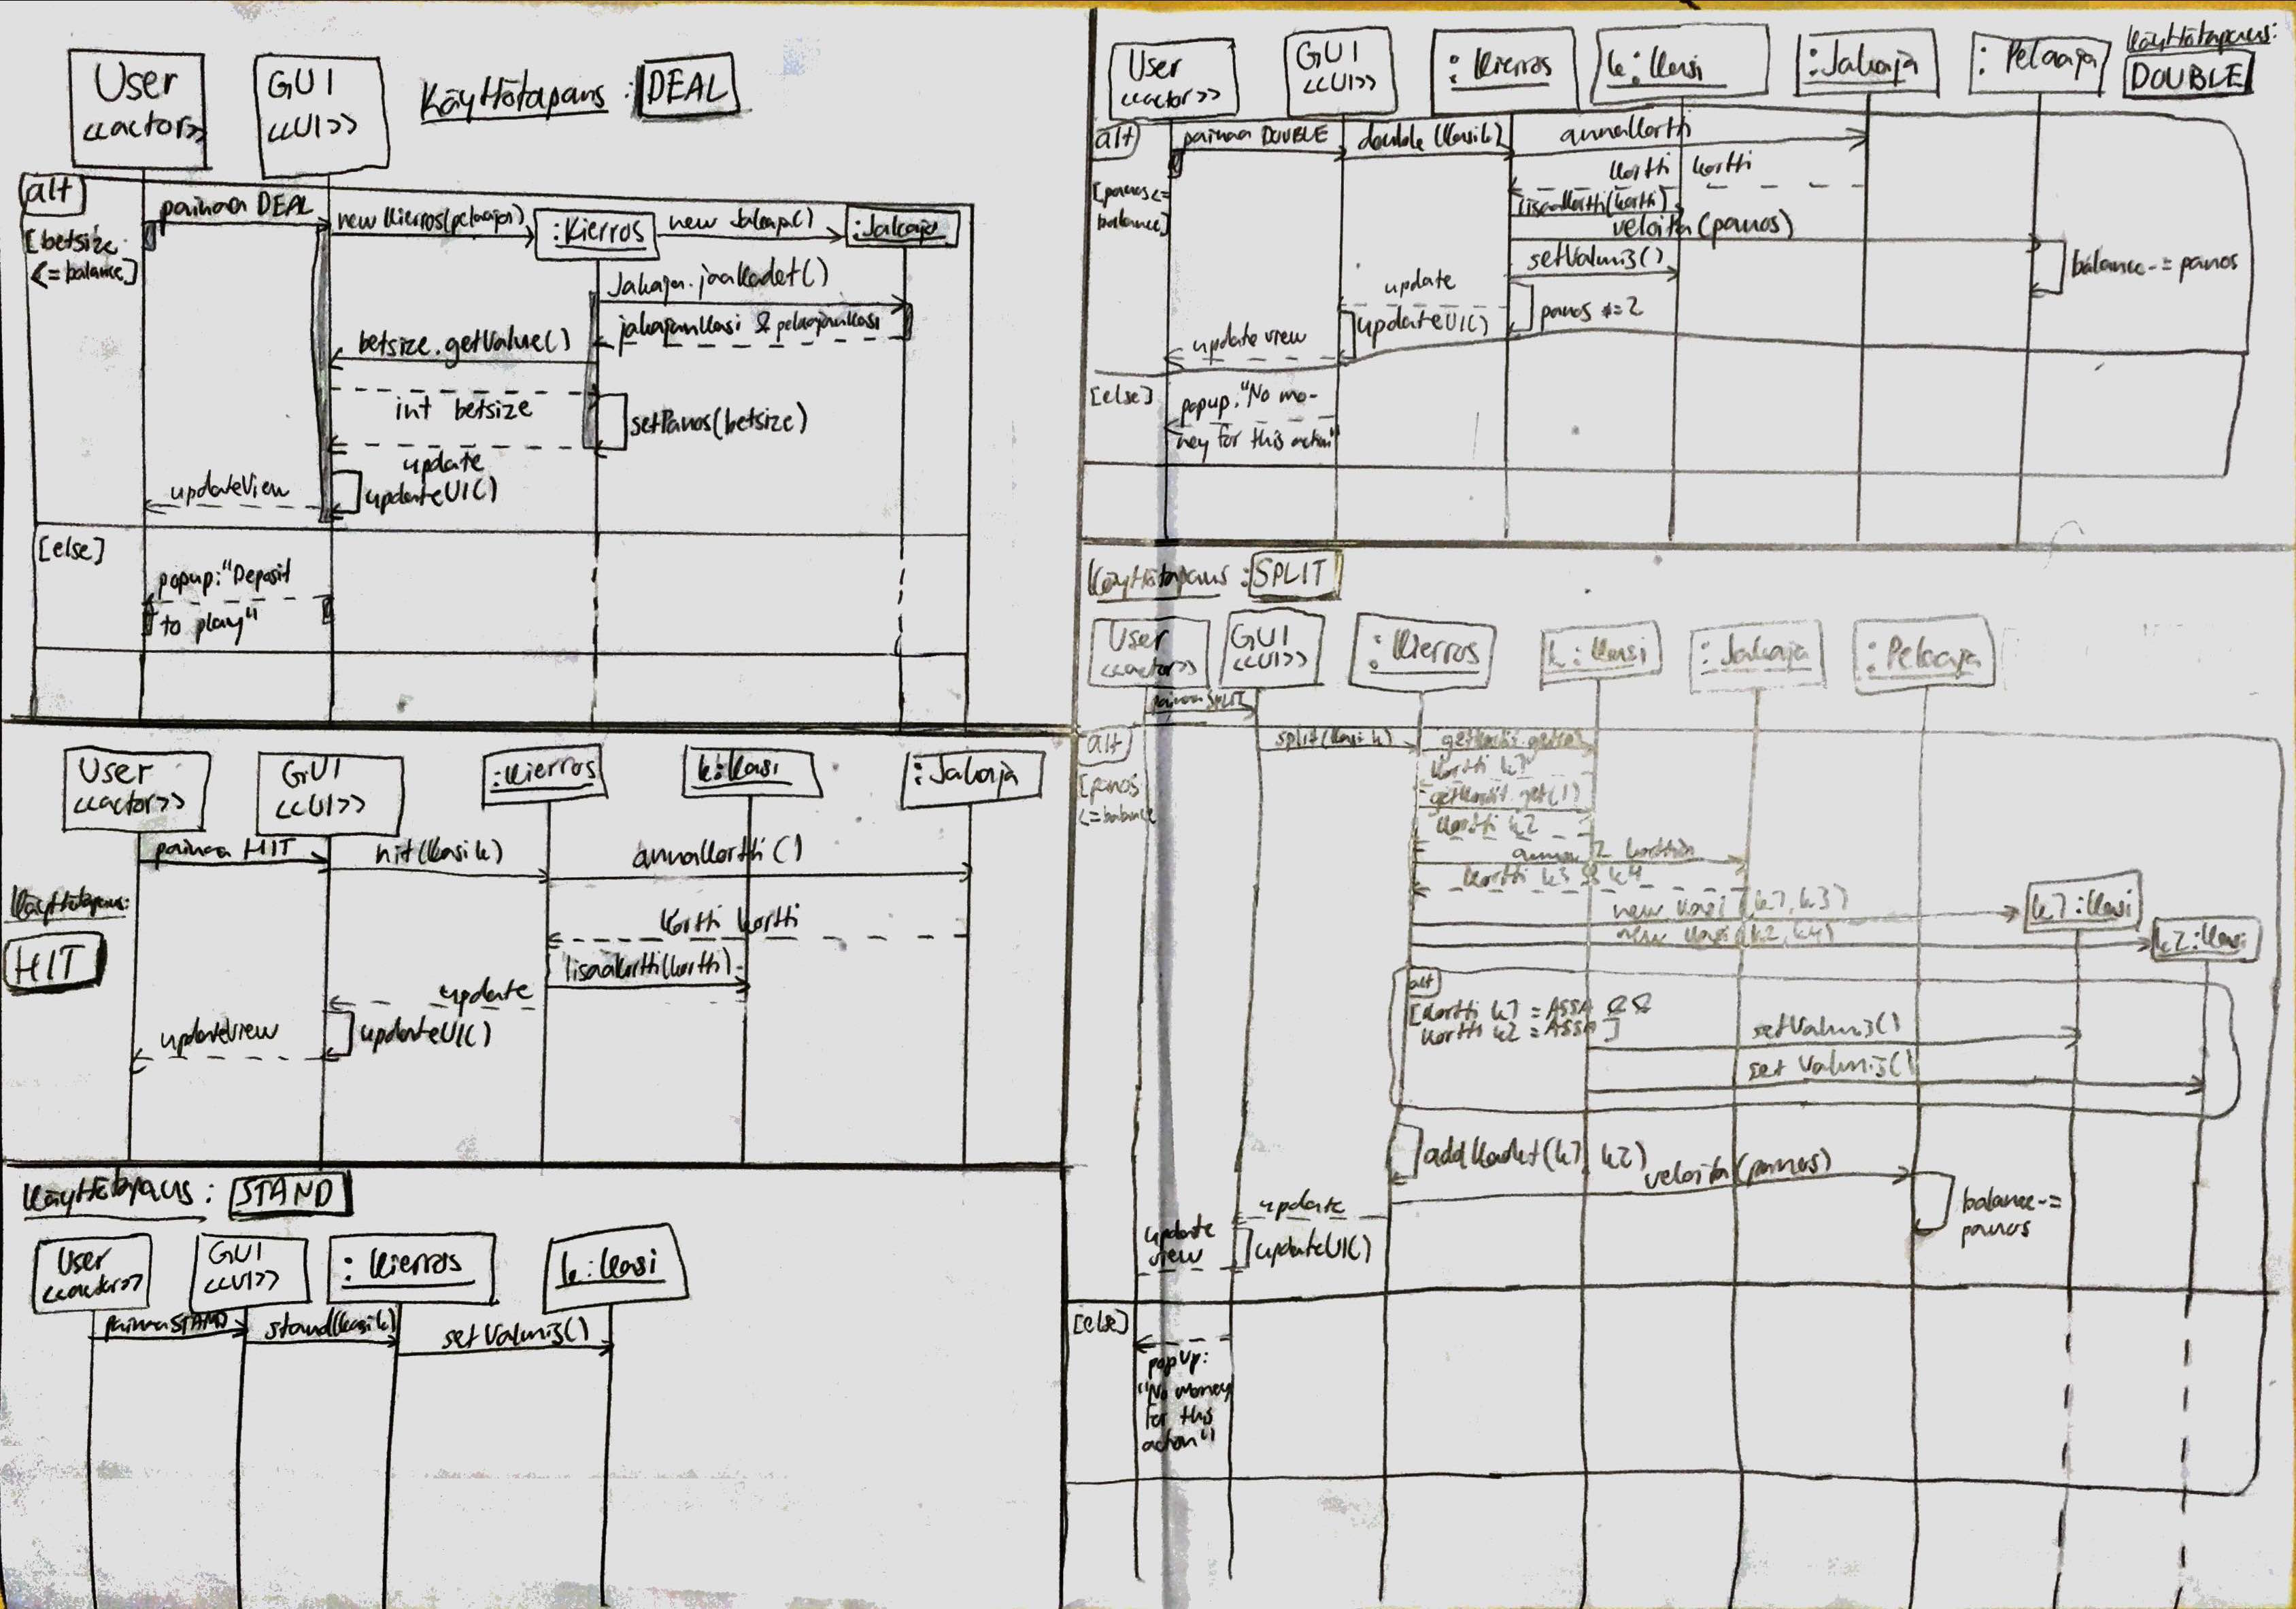 User
<<actor>>
GUI
<<UI>>
Käyttötapaus : DEAL
alt
[betsize
<= balance]
painaa DEAL
new Kierros(pelaaja)
:Kierros
new Jakaja()
:Jakaja
Jakaja.jaaKadet()
jakajanKasi & pelaajanKasi
betsize.getValue()
int betsize
setPanos(betsize)
update
updateUI()
updateView
[else]
popup: "Deposit
to play"
User
<<actor>>
GUI
<<UI>>
:Kierros
k:Kasi
:Jakaja
Käyttötapaus:
HIT
painaa HIT
hit(Kasi k)
annaKortti()
Kortti kortti
lisaaKortti(kortti)
update
updateUI()
updateView
Käyttötapaus: STAND
User
<<actor>>
GUI
<<UI>>
: Kierros
k:Kasi
painaa STAND
stand(Kasi k)
setValmis()
User
<<actor>>
GUI
<<UI>>
: Kierros
k:Kasi
:Jakaja
: Pelaaja
Käyttötapaus:
DOUBLE
alt
[panos<=
balance]
painaa DOUBLE
double(Kasi k)
annaKortti
Kortti kortti
lisaaKortti(kortti)
veloita(panos)
balance -= panos
setValmis()
panos *= 2
update
updateUI()
update view
[else]
popup: "No mo-
ney for this action"
Käyttötapaus : SPLIT
User
<<actor>>
GUI
<<UI>>
: Kierros
k:Kasi
: Jakaja
: Pelaaja
painaa SPLIT
alt
[panos
<= balance
split(Kasi k)
Kortti k1
getKortit.get(1)
Kortti k2
anna 2 korttia
Kortti k3 & k4
new Kasi(k1, k3)
k1:Kasi
new Kasi(k2, k4)
k2:Kasi
alt
[Kortti k1 = ASSA &&
Kortti k2 = ASSA]
setValmis()
setValmis()
addKadet(k1, k2)
veloita(panos)
balance -=
panos
update
updateUI()
update
view
[else]
popup:
"No money
for this
action"